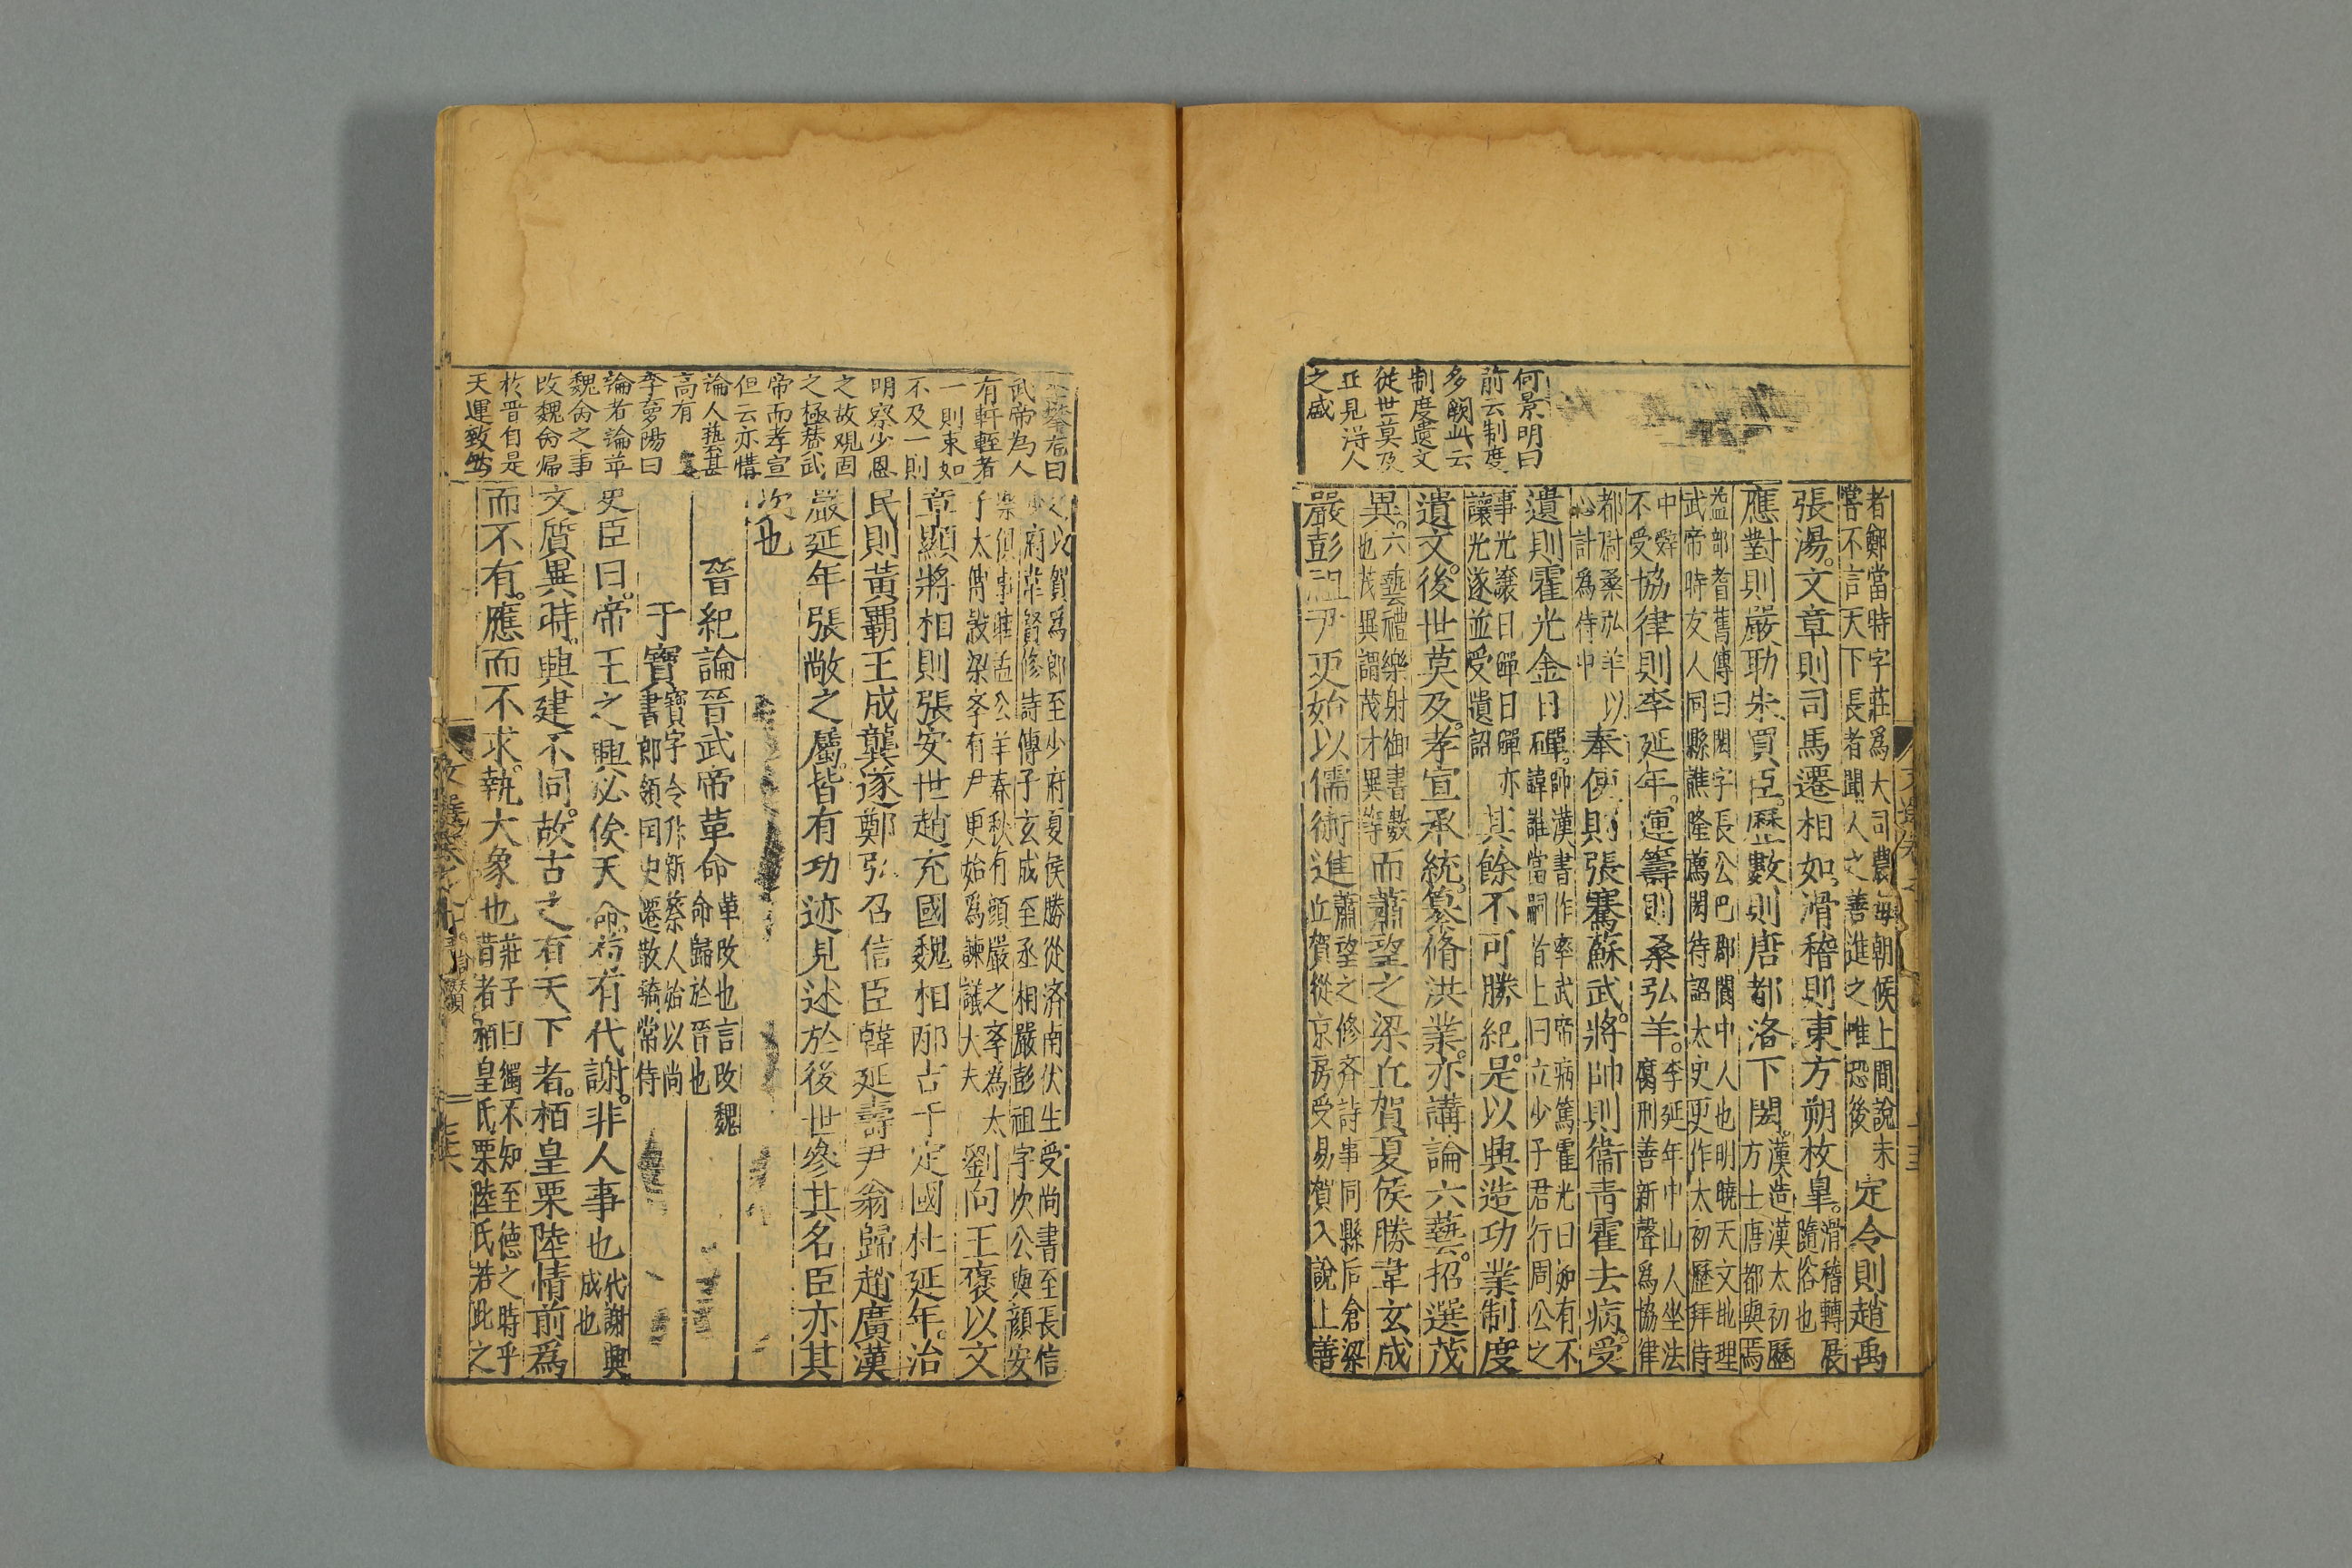 何景明曰
前云制度
多闕此云
制度遺文
後世莫及
正見得人
之盛
者鄭當時字莊爲大司農每朝候上間說未
嘗不言天下長者聞人之善進之唯恐後
定令則趙禹
張湯。文章則司馬遷相如。滑稽則東方朔枚皐。
滑稽轉展
隨俗也
應對則嚴助朱買臣。曆數則唐都洛下閎。
漢造漢太初歷
方士唐都與焉
益部耆舊傳曰閎字長公巴郡閬中人也明曉天文地理
武帝時友人同縣譙隆薦閎待詔太史更作太初歷拜侍
中辭
不受
協律則李延年。運籌則桑弘羊。
李延年中山人坐法
腐刑善新聲爲協律
都尉桑弘羊以
心計爲侍中
奉使則張騫蘇武。將帥則衞青霍去病。受
遺則霍光金日磾。
帥漢書作率武帝病篤霍光曰如有不
諱誰當嗣者上曰立少子君行周公之
事光讓曰日磾亦
讓光遂並受遺詔
其餘不可勝紀。是以興造功業制度
遺文。後世莫及。孝宣承統。纂脩洪業。亦講論六藝。招選茂
異。
六藝禮樂射御書數
也茂異謂茂才異等
而蕭望之梁丘賀夏侯勝韋玄成
嚴彭祖尹更始以儒術進
蕭望之修齊詩事同縣后倉梁
丘賀從京房受易賀入說上善
武帝為人
有軒輊者
一則東如
不及一則
明察少恩
之故观固
之極替武
帝而孝宣
但云亦惜
論人藝甚
高有
李夢陽曰
論者論革
魏命之事
改魏命歸
於晋自是
天運致然
之以賀爲郎至少府夏侯勝從済南伏生受尚書至長信
少府韋賢修詩傳子玄成至丞相嚴彭祖字次公與顔安
樂俱事眭孟公羊春秋有顔嚴之學為太
子太傅設梁學有尹更始爲諫議大夫
劉向王褒以文
章顯將相則張安世趙充國魏相邴吉于定國杜延年。治
民則黃霸王成龔遂鄭弘召信臣韓延壽尹翁歸趙廣漢
嚴延年張敞之屬。皆有功迹見述於後世參其名臣亦其
次也
晉紀論晉武帝革命
革改也言改魏
命歸於晋也
于寶
寶字令升新蔡人始以尚
書郎領国史遷散騎常侍
史臣曰。帝王之興必俟天命。苟有代謝。非人事也
代謝興
成也
文質異時。興建不同。故古之有天下者。栢皇栗陸情前爲
而不有。應而不求。執大象也
莊子曰獨不知至德之時乎
昔者栢皇氏栗陸氏若此之